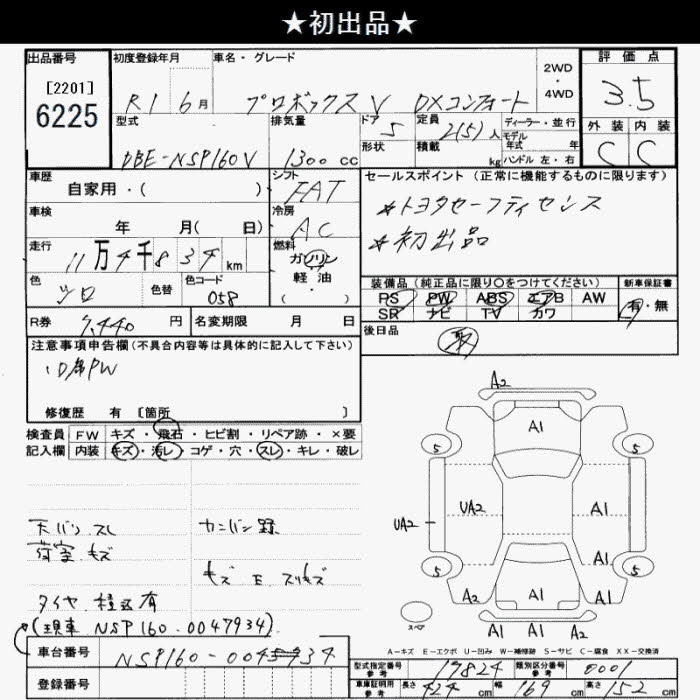 ★初出品★
出品番号
[2201]
6225
初度登録年月
R1 6月
車名・グレード
プロボックスV DXコンフォート
2WD
・
4WD
評価点
3.5
外装 内装
C C
型式
DBE-NSP160V
排気量
1300cc
ドア
5
形状
定員
2(5)人
積載
kg
ディーラー・並行
モデル
年式 年
ハンドル 左・右
車歴
自家用・( )
シフト
FAT
車検
年 月( 日)
冷房
AC
走行
11万4千834km
燃料
ガソリン
軽・油
( )
色
シロ
色替
色コード
058
R券
7,440円
名変期限 月 日
セールスポイント(正常に機能するものに限ります)
☆トヨタセーフティセンス
☆初出品
装備品(純正品に限り○をつけてください)
PS PW ABS エアB AW
SR ナビ TV カワ
新車保証書
有・無
後日品
注意事項申告欄(不具合内容等は具体的に記入して下さい)
・D席PW
修復歴 有 [箇所 ]
検査員
記入欄
FW キズ・飛石・ヒビ割・リペア跡・×要
内装 キズ・汚レ・コゲ・穴・スレ・キレ・破レ
天バリ スレ
荷室 キズ
カンバン跡
キズ E スリキズ
タイヤ 積込有
(現車 NSP160-0047934)
車台番号
NSP160-0045934
登録番号
A2
A1
5 5
UA2
UA2
A1
A1
A1
5 5
A2 A1 A1
スペア
A1 A1 A2
A-キズ E-エクボ U-凹み W-補修跡 S-サビ C-腐食 XX-交換済
型式指定番号
参考
19824
類別区分番号
参考
0001
車庫証明用
参考
長さ 424cm 幅 169cm 高さ 152cm